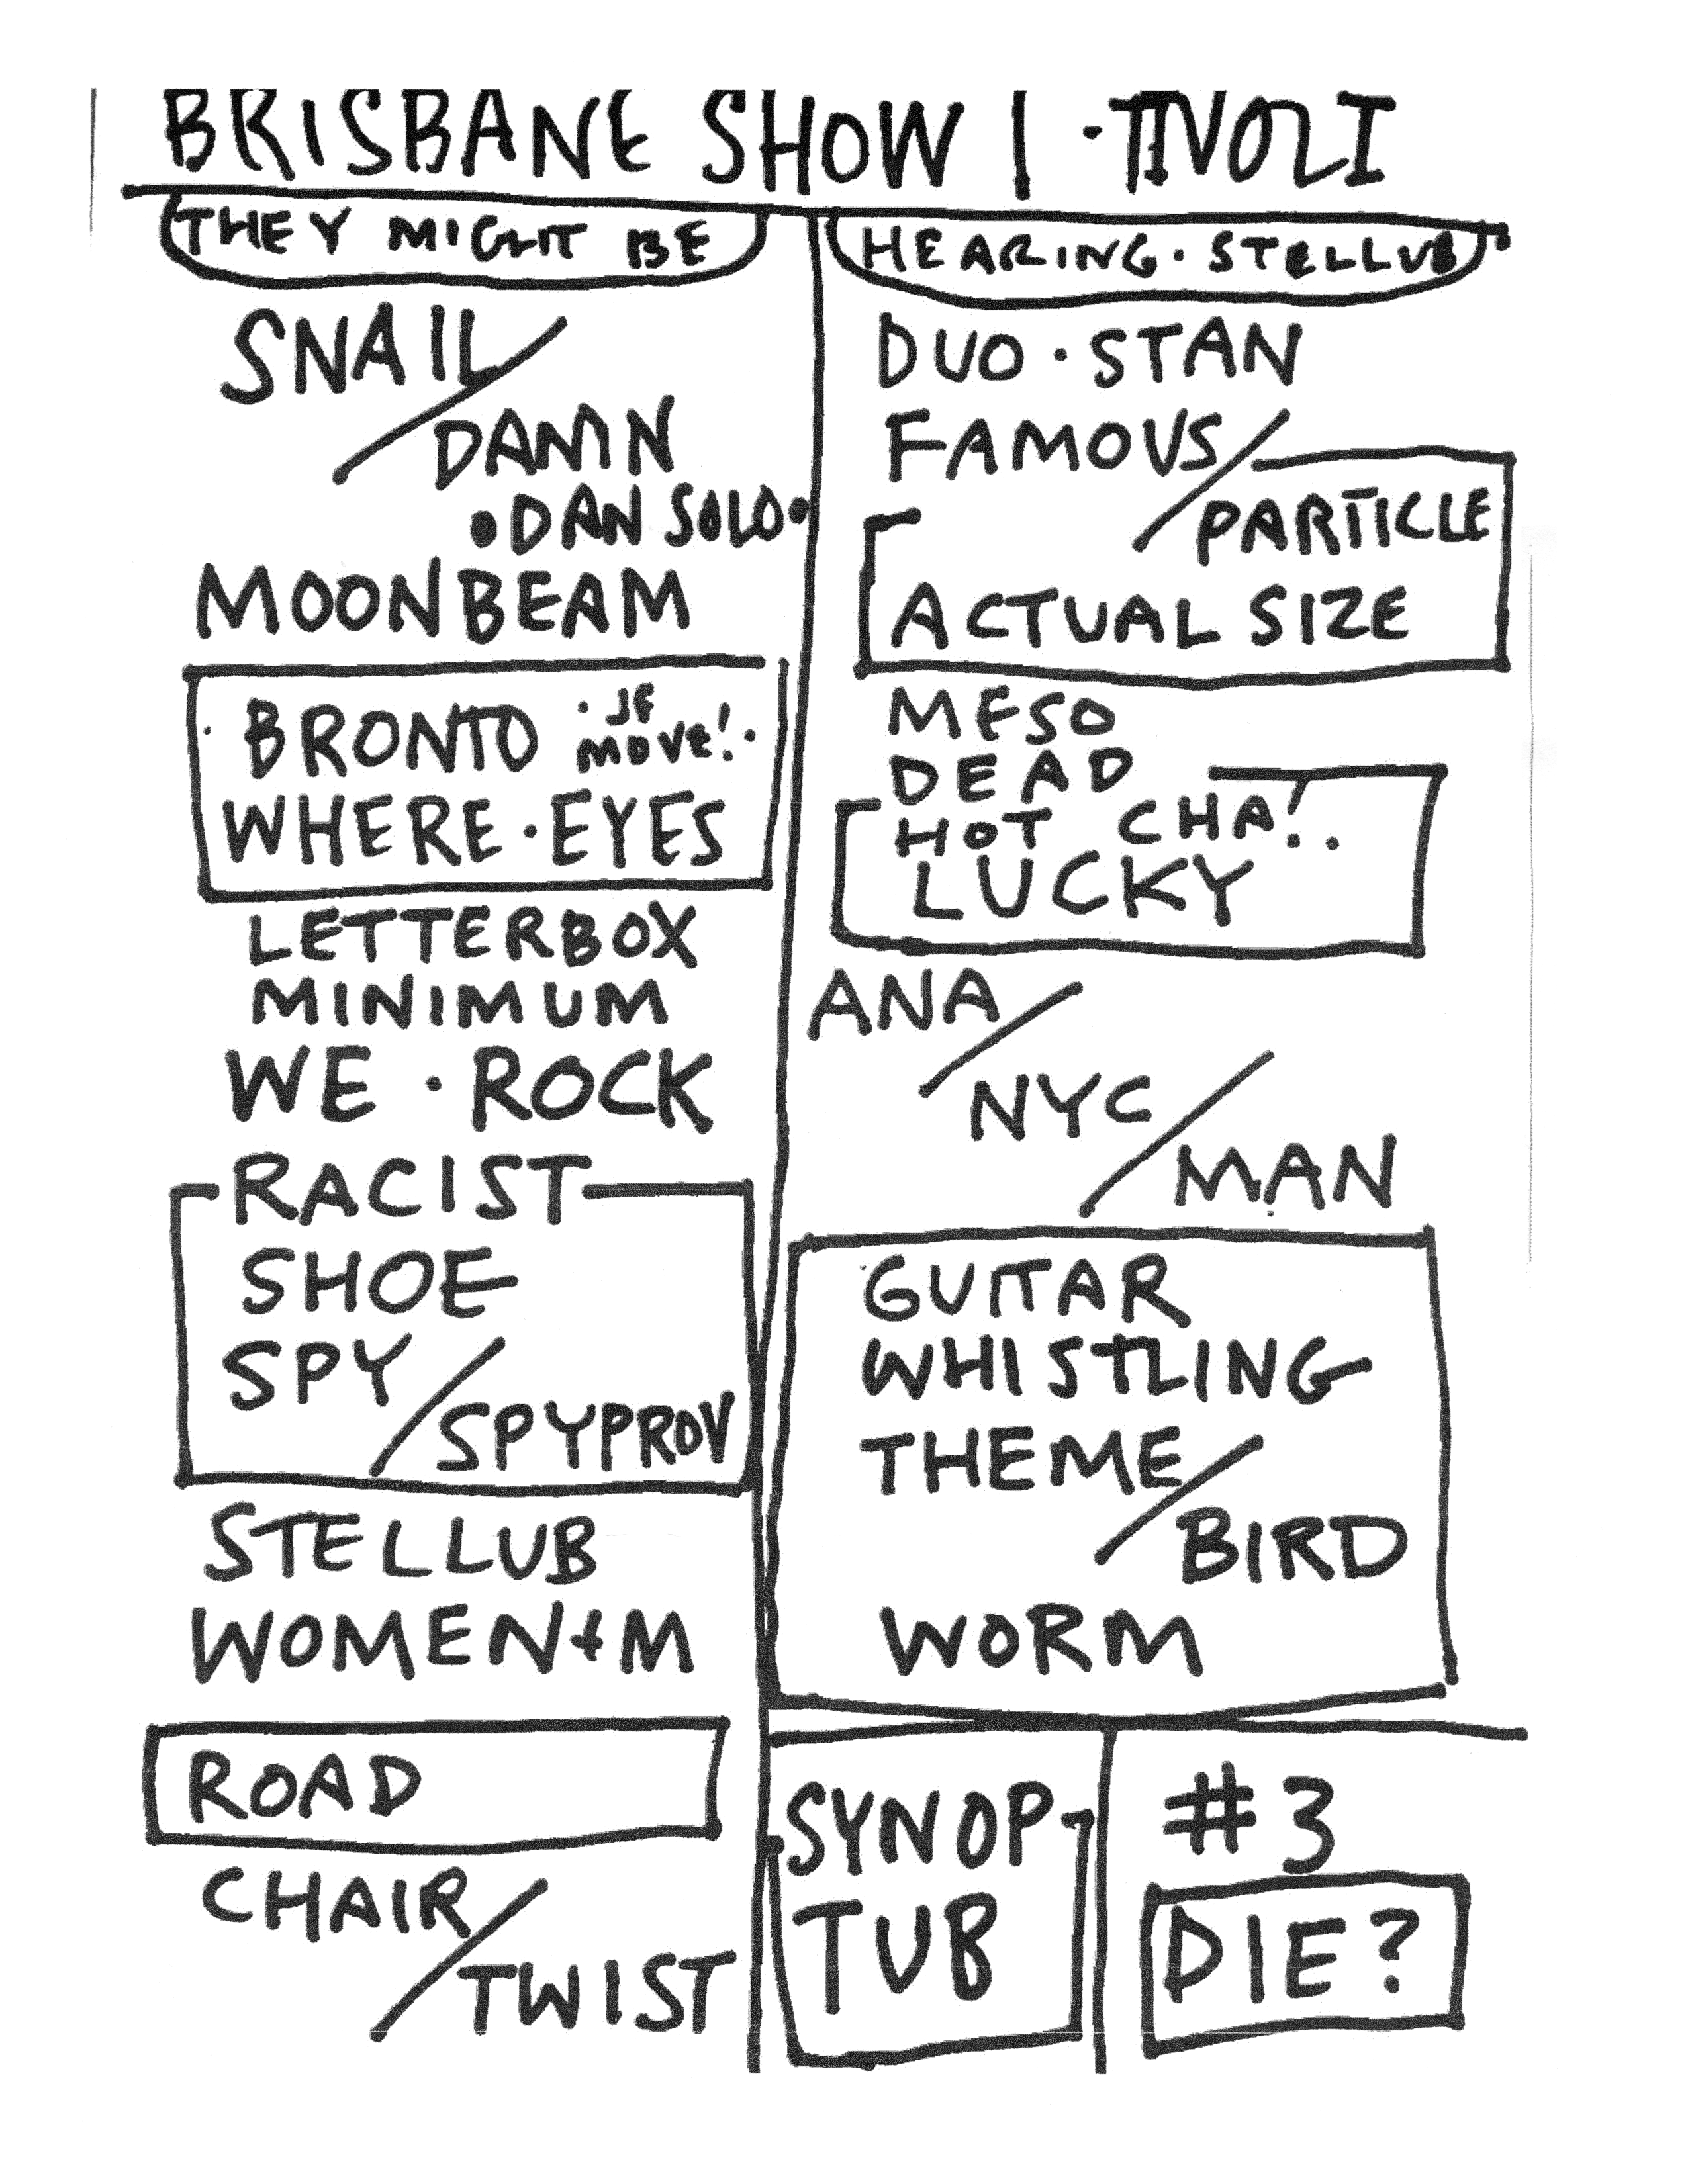 BRISBANE SHOW 1 · TIVOLI
THEY MIGHT BE
SNAIL/
DAMN
• DAN SOLO •
MOONBEAM
BRONTO · IF MOVE! ·
WHERE · EYES
LETTERBOX
MINIMUM
WE · ROCK
RACIST
SHOE
SPY/
SPYPROV
STELLUB
WOMEN + M
ROAD
CHAIR/
TWIST
HEARING · STELLUB
DUO · STAN
FAMOUS/
PARTICLE
ACTUAL SIZE
MESO
DEAD
HOT CHA! .
LUCKY
ANA/
NYC/
MAN
GUITAR
WHISTLING
THEME/
BIRD
WORM
SYNOP
TUB
#3
DIE?